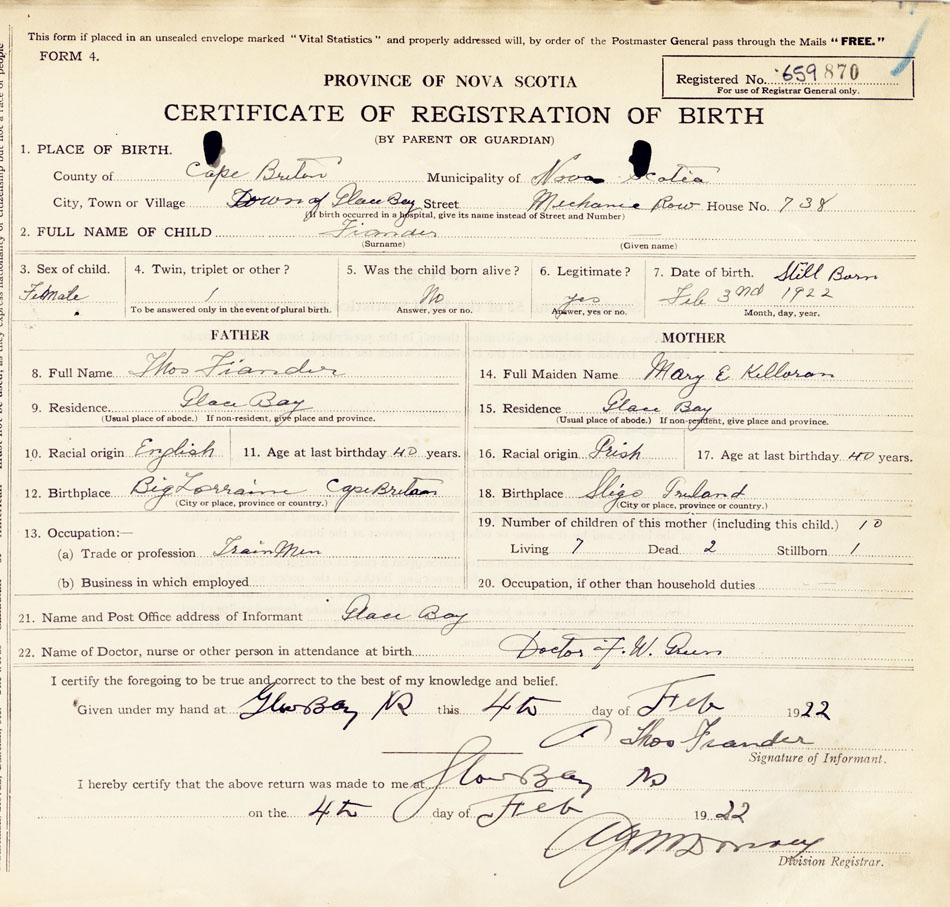 This form if placed in an unsealed envelope marked "Vital Statistics" and properly addressed will, by order of the Postmaster General pass through the Mails "FREE."
FORM 4.
Registered No. 659870
For use of Registrar General only.
PROVINCE OF NOVA SCOTIA
CERTIFICATE OF REGISTRATION OF BIRTH
(BY PARENT OR GUARDIAN)
1. PLACE OF BIRTH.
County of Cape Breton Municipality of Nova Scotia
City, Town or Village Town of Glace Bay Street Mechanic Row House No. 738
(If birth occurred in a hospital, give its name instead of Street and Number)
2. FULL NAME OF CHILD Fiander —
(Surname) (Given name)
3. Sex of child. 4. Twin, triplet or other? 5. Was the child born alive? 6. Legitimate? 7. Date of birth. Still Born
Female / No yes Feb 3nd 1922
To be answered only in the event of plural birth. Answer, yes or no. Answer, yes or no. Month, day, year.
FATHER
8. Full Name Thos Fiander
9. Residence Glace Bay
(Usual place of abode.) If non-resident, give place and province.
10. Racial origin English 11. Age at last birthday 40 years.
12. Birthplace Big Lorraine Cape Breton
(City or place, province or country.)
13. Occupation:—
(a) Trade or profession Train Men
(b) Business in which employed
MOTHER
14. Full Maiden Name Mary E Killoran
15. Residence Glace Bay
(Usual place of abode.) If non-resident, give place and province.
16. Racial origin Irish 17. Age at last birthday 40 years.
18. Birthplace Sligo Ireland
(City or place, province or country.)
19. Number of children of this mother (including this child.) 10
Living 7 Dead 2 Stillborn 1
20. Occupation, if other than household duties —
21. Name and Post Office address of Informant Glace Bay
22. Name of Doctor, nurse or other person in attendance at birth Doctor F. W. Green
I certify the foregoing to be true and correct to the best of my knowledge and belief.
Given under my hand at Glace Bay this 4th day of Feb 1922
Thos Fiander
Signature of Informant.
I hereby certify that the above return was made to me at Glace Bay NS
on the 4th day of Feb 1922
Division Registrar.